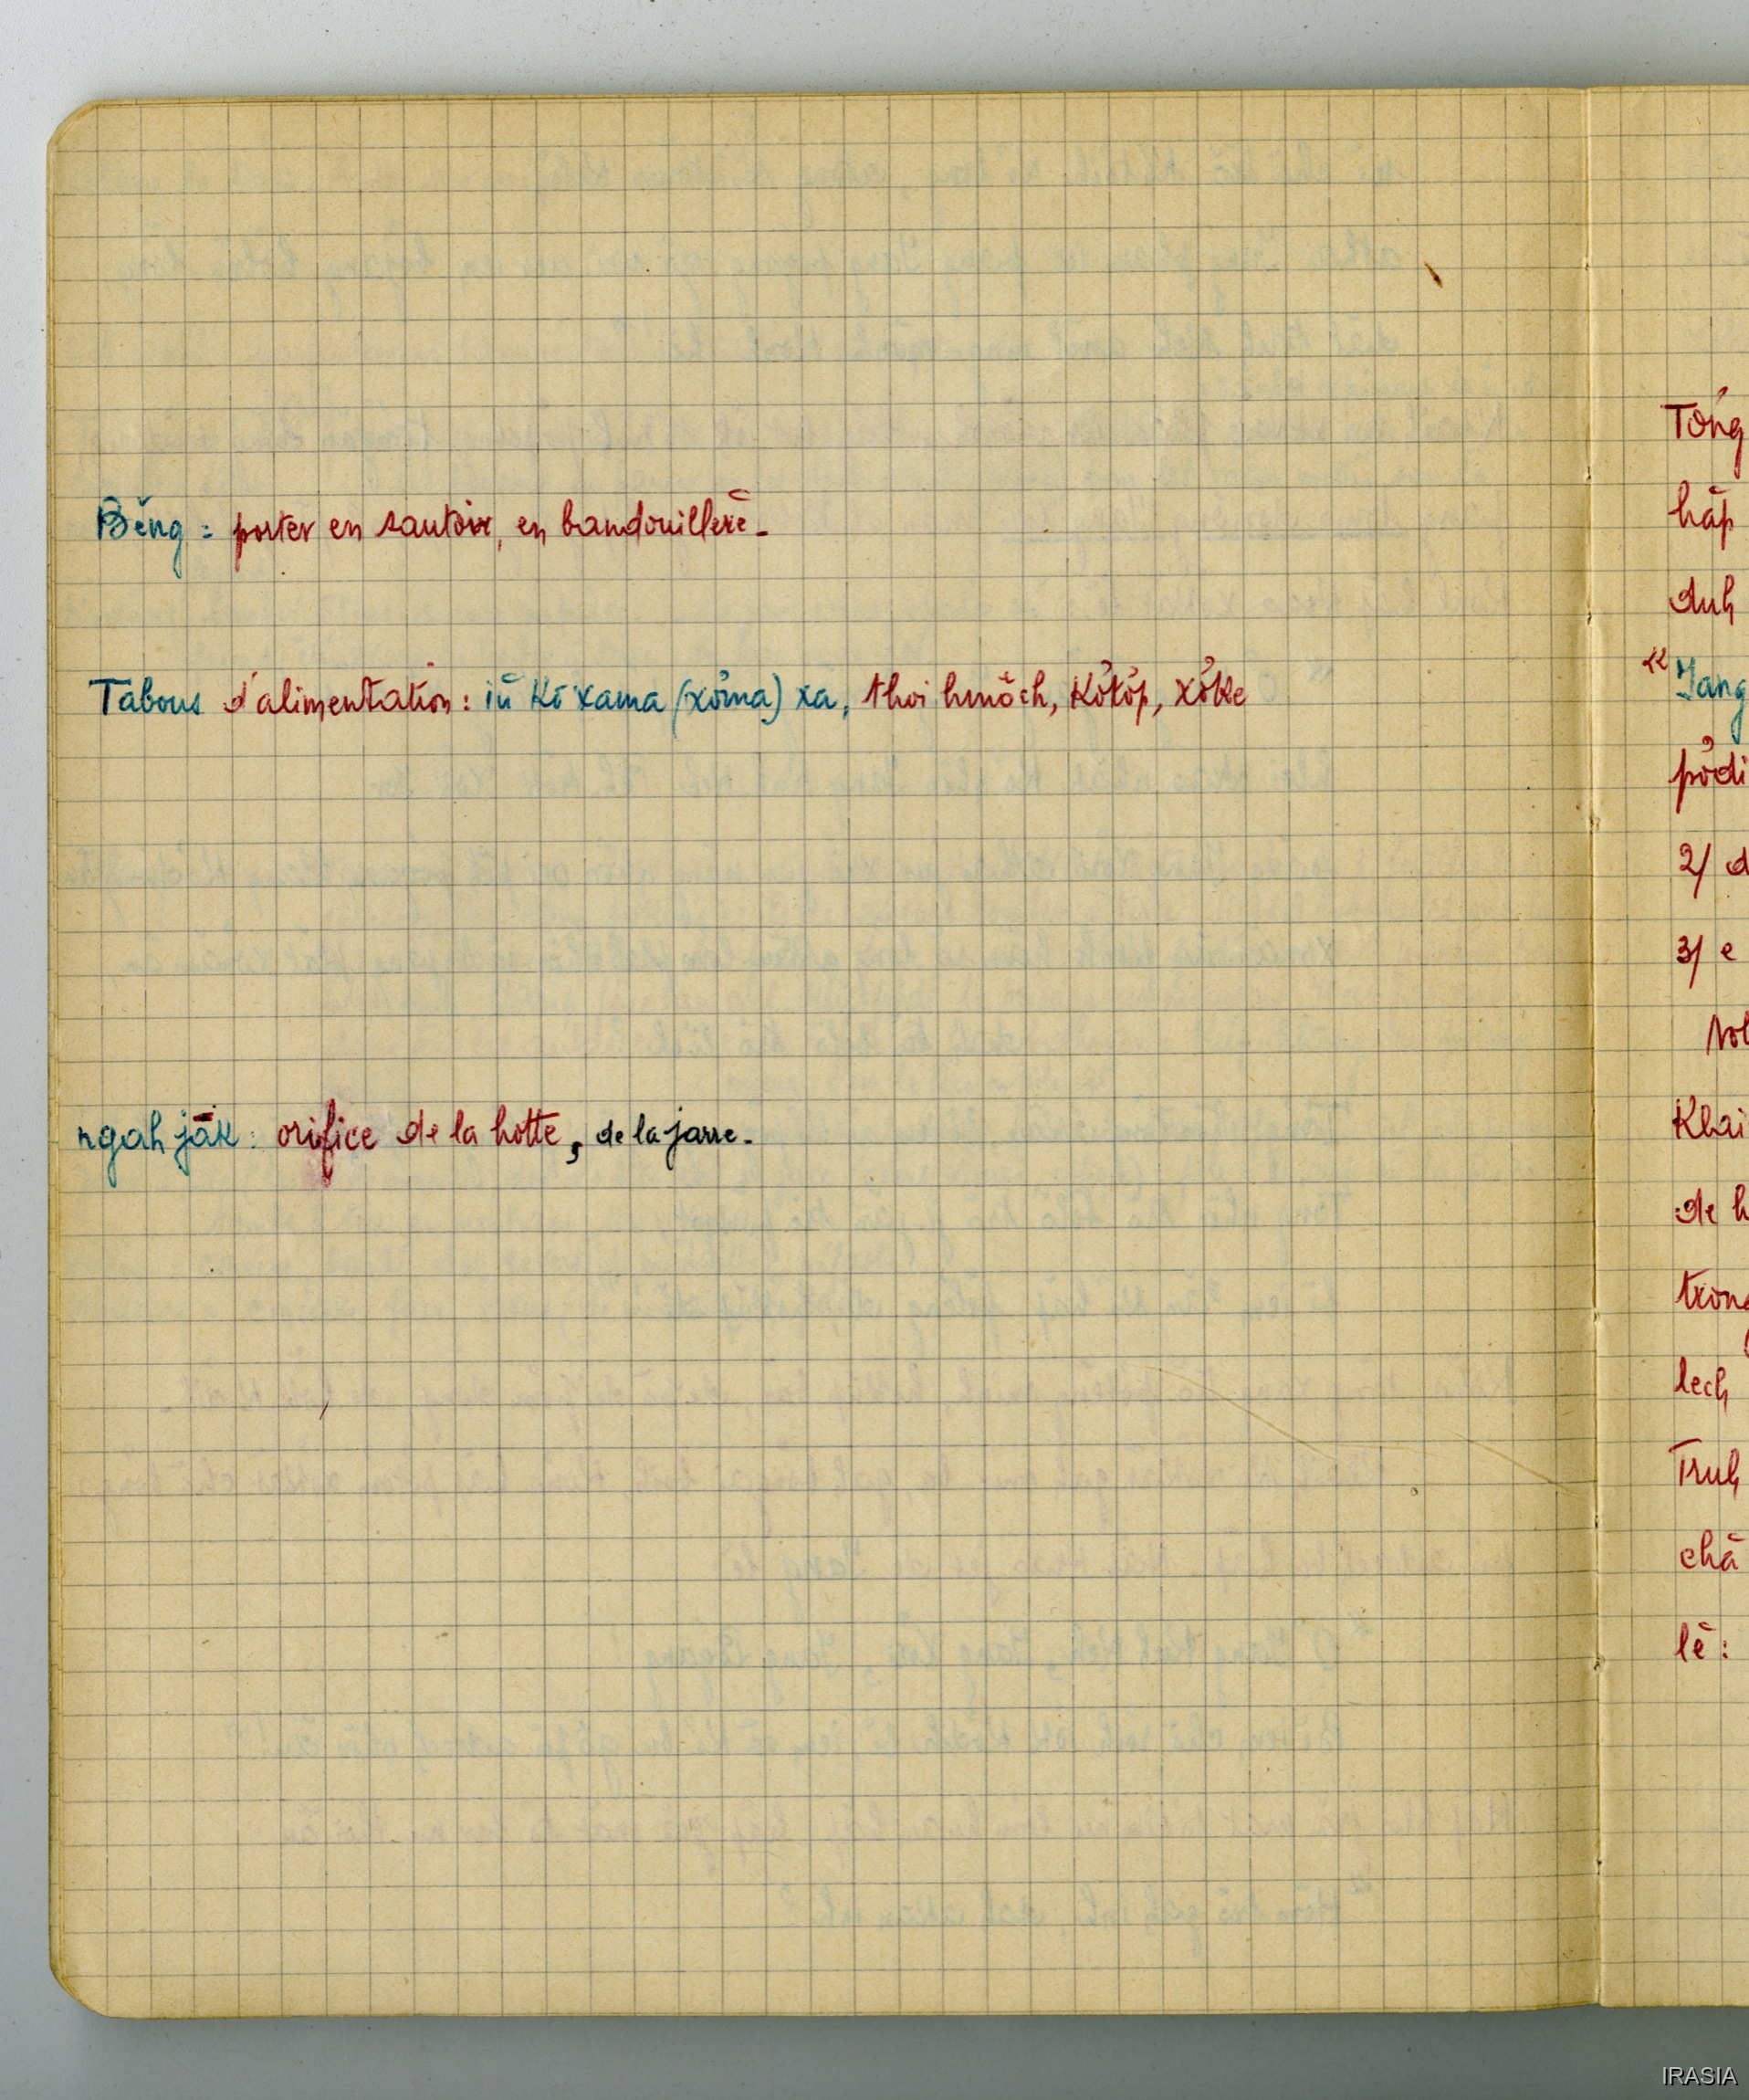 Běng = porter en sautoir, en bandouillere.
Tabous d'alimentation: iŭ Kō xama (xơ̆ma) xa, thoi hmŏch, Kơ̆tơ̆p, xơ̆ke
ngah jăk: orifice de la hotte, de la jarre.
Tơ̆ng
hăp
duh
"Jang
pơ̆di
2/ d
3/ e
Khai
de h
lech
Truh
chă
lĕ:
IRASIA